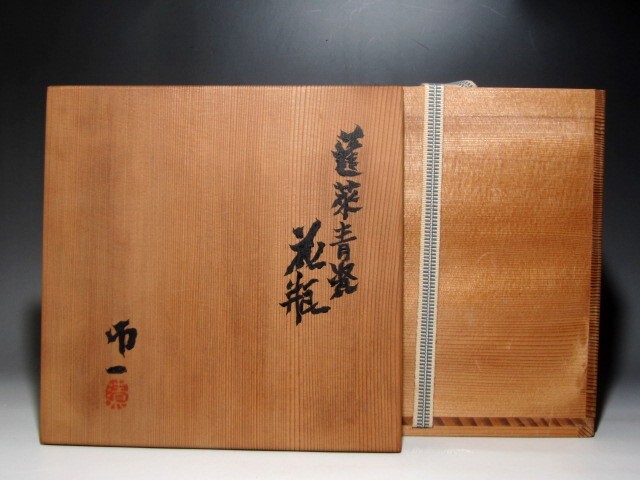 蓬莱青瓷
花瓶
帅一